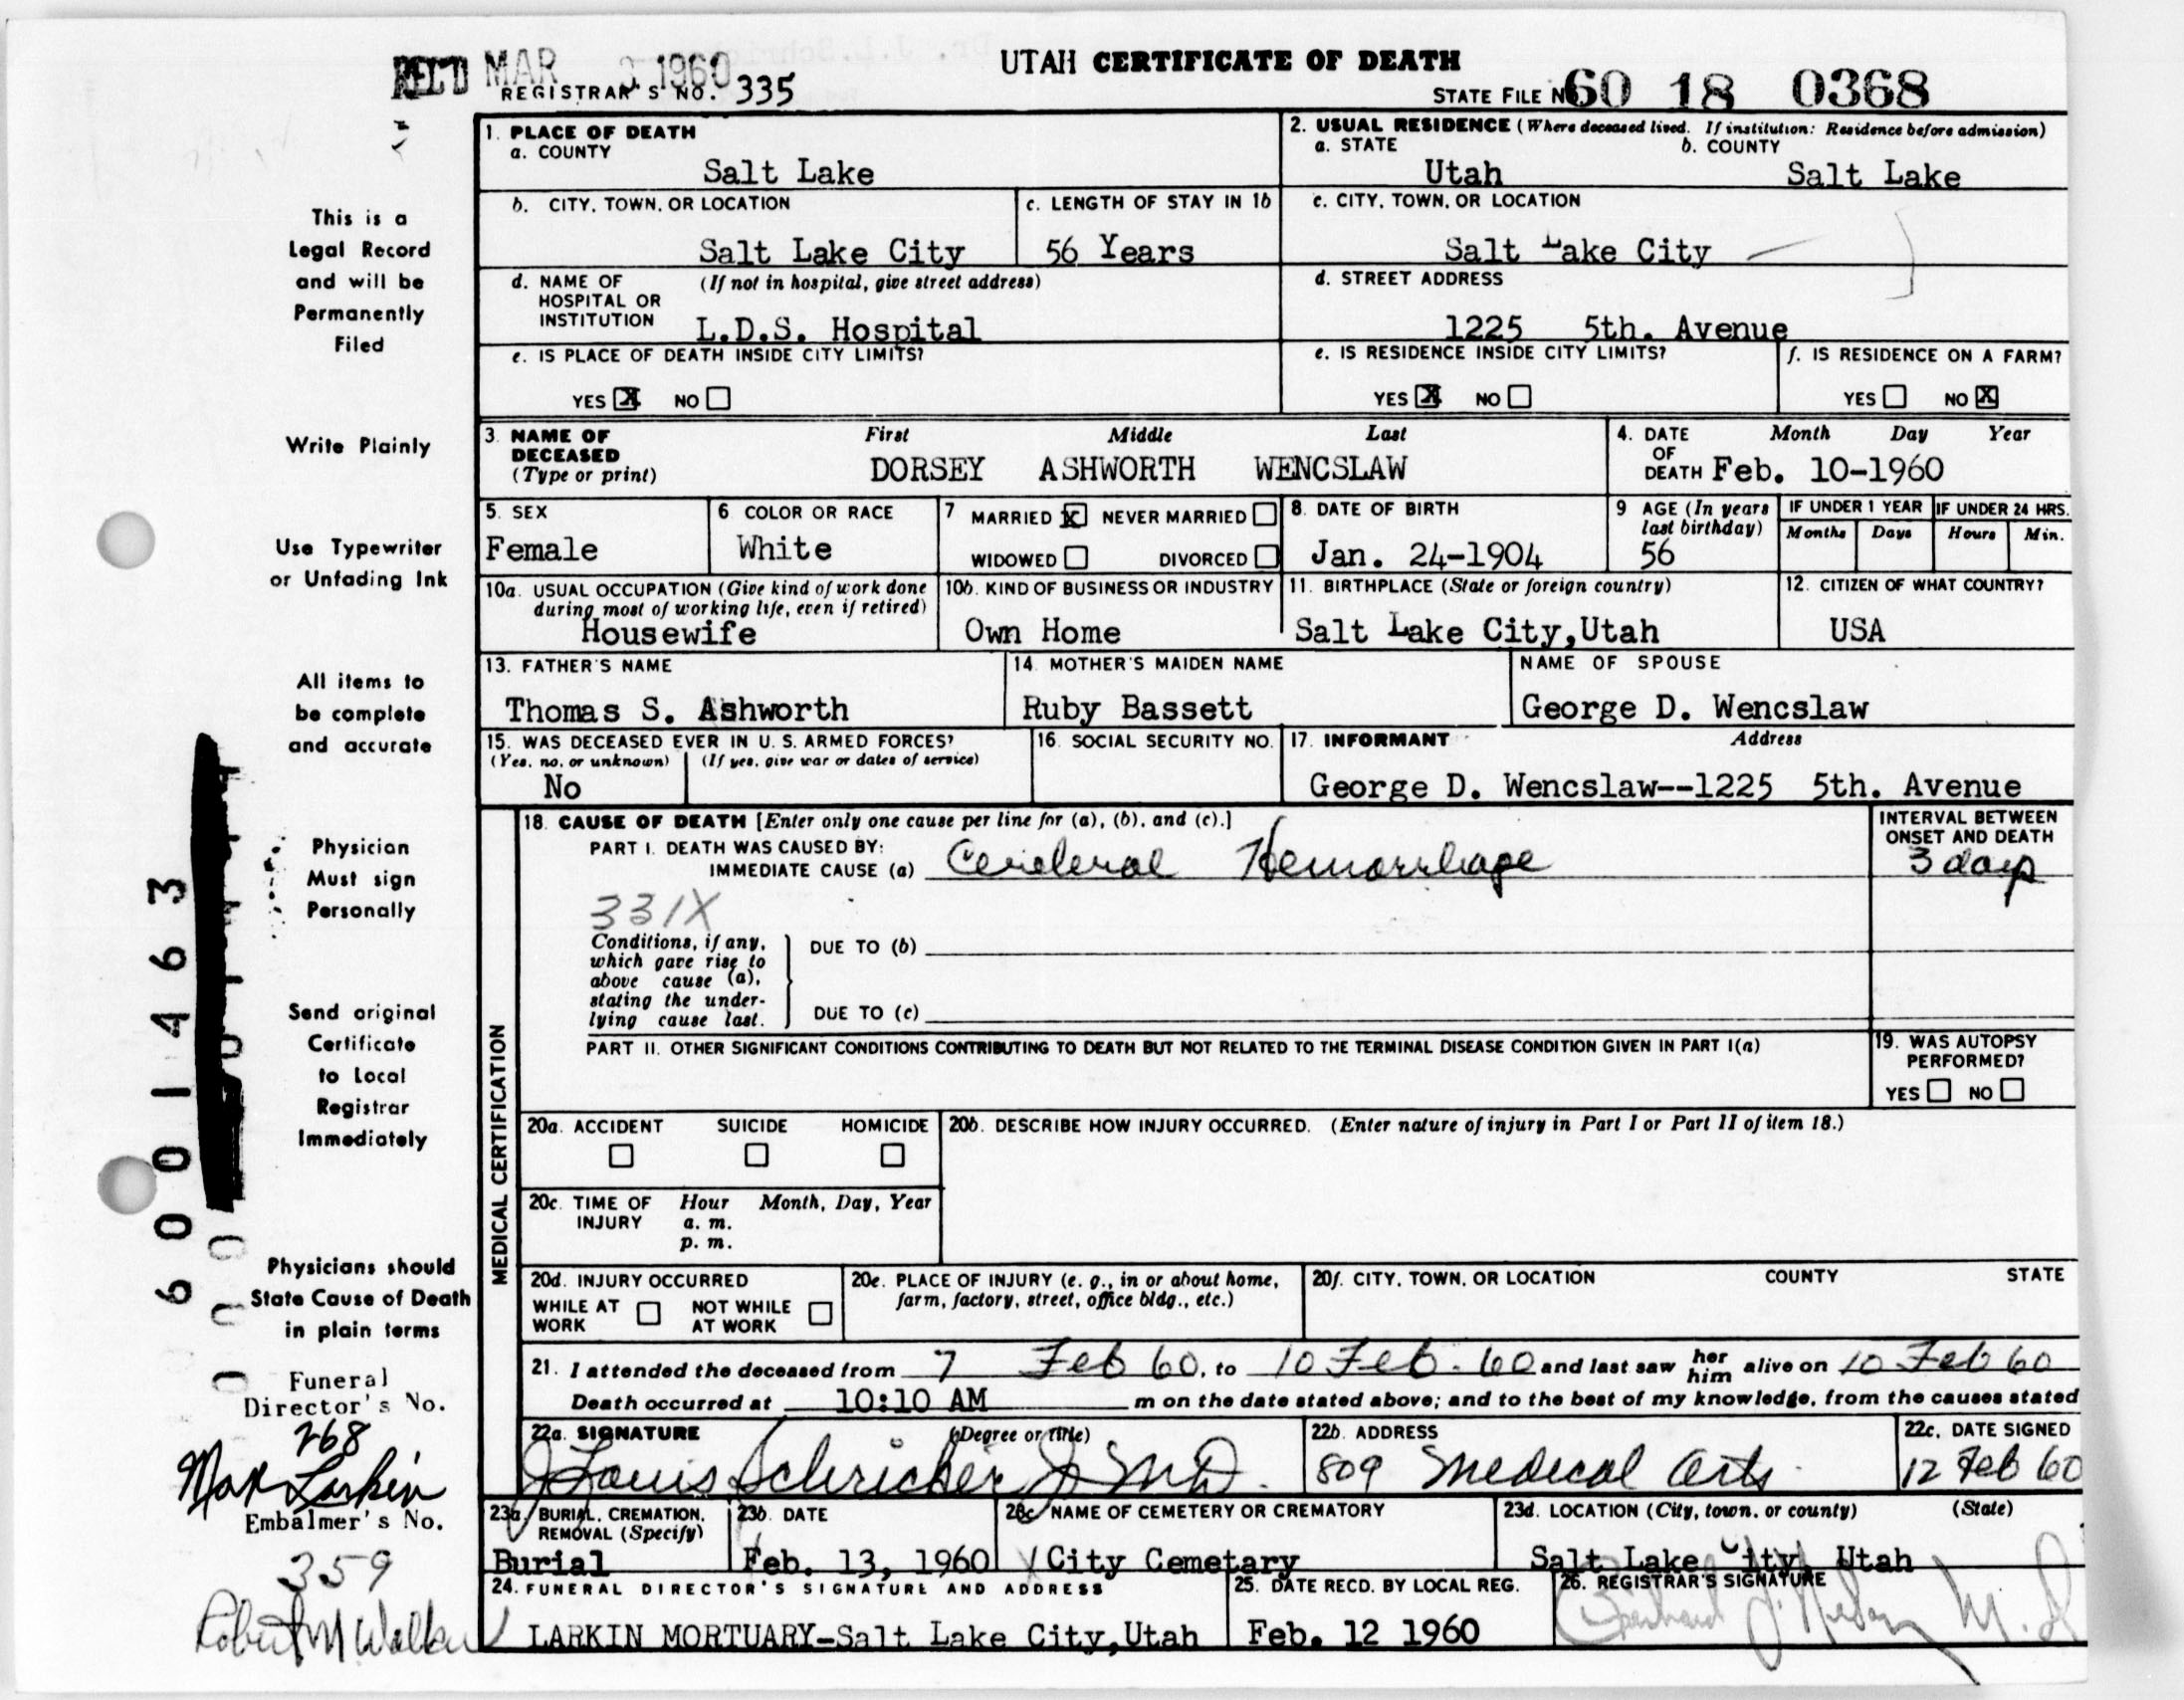 REC'D MAR 3 1960
REGISTRAR'S NO. 335
UTAH CERTIFICATE OF DEATH
STATE FILE NO 60 18 0368
This is a
Legal Record
and will be
Permanently
Filed
Write Plainly
Use Typewriter
or Unfading Ink
All items to
be complete
and accurate
Physician
Must sign
Personally
Send original
Certificate
to Local
Registrar
Immediately
Physicians should
State Cause of Death
in plain terms
Funeral
Director's No.
268
Max Larkin
Embalmer's No.
359
Robert M Walker
6001463
1. PLACE OF DEATH
a. COUNTY
Salt Lake
2. USUAL RESIDENCE (Where deceased lived. If institution: Residence before admission)
a. STATE b. COUNTY
Utah Salt Lake
b. CITY, TOWN, OR LOCATION
Salt Lake City
c. LENGTH OF STAY IN 1b
56 Years
c. CITY, TOWN, OR LOCATION
Salt Lake City
d. NAME OF HOSPITAL OR INSTITUTION (If not in hospital, give street address)
L.D.S. Hospital
d. STREET ADDRESS
1225 5th. Avenue
e. IS PLACE OF DEATH INSIDE CITY LIMITS?
YES X NO
e. IS RESIDENCE INSIDE CITY LIMITS?
YES X NO
f. IS RESIDENCE ON A FARM?
YES NO X
3. NAME OF DECEASED (Type or print)
First Middle Last
DORSEY ASHWORTH WENCSLAW
4. DATE OF DEATH Month Day Year
Feb. 10-1960
5. SEX
Female
6 COLOR OR RACE
White
7 MARRIED X NEVER MARRIED
WIDOWED DIVORCED
8. DATE OF BIRTH
Jan. 24-1904
9 AGE (In years last birthday)
56
IF UNDER 1 YEAR
Months Days
IF UNDER 24 HRS.
Hours Min.
10a. USUAL OCCUPATION (Give kind of work done during most of working life, even if retired)
Housewife
10b. KIND OF BUSINESS OR INDUSTRY
Own Home
11. BIRTHPLACE (State or foreign country)
Salt Lake City,Utah
12. CITIZEN OF WHAT COUNTRY?
USA
13. FATHER'S NAME
Thomas S. Ashworth
14. MOTHER'S MAIDEN NAME
Ruby Bassett
NAME OF SPOUSE
George D. Wencslaw
15. WAS DECEASED EVER IN U. S. ARMED FORCES?
(Yes, no, or unknown) (If yes, give war or dates of service)
No
16. SOCIAL SECURITY NO.
17. INFORMANT Address
George D. Wencslaw--1225 5th. Avenue
MEDICAL CERTIFICATION
18. CAUSE OF DEATH [Enter only one cause per line for (a), (b), and (c).]
PART I. DEATH WAS CAUSED BY:
IMMEDIATE CAUSE (a) Cerebral Hemorrhage
INTERVAL BETWEEN ONSET AND DEATH
3 days
331X
Conditions, if any, which gave rise to above cause (a), stating the underlying cause last.
DUE TO (b)
DUE TO (c)
PART II. OTHER SIGNIFICANT CONDITIONS CONTRIBUTING TO DEATH BUT NOT RELATED TO THE TERMINAL DISEASE CONDITION GIVEN IN PART I(a)
19. WAS AUTOPSY PERFORMED?
YES NO
20a. ACCIDENT SUICIDE HOMICIDE
20b. DESCRIBE HOW INJURY OCCURRED. (Enter nature of injury in Part I or Part II of item 18.)
20c. TIME OF INJURY Hour Month, Day, Year
a. m.
p. m.
20d. INJURY OCCURRED
WHILE AT WORK NOT WHILE AT WORK
20e. PLACE OF INJURY (e. g., in or about home, farm, factory, street, office bldg., etc.)
20f. CITY, TOWN, OR LOCATION COUNTY STATE
21. I attended the deceased from 7 Feb 60, to 10 Feb. 60 and last saw her him alive on 10 Feb 60
Death occurred at 10:10 AM m on the date stated above; and to the best of my knowledge, from the causes stated
22a. SIGNATURE (Degree or title)
J Louis Schricker Jr MD.
22b. ADDRESS
809 Medical Arts
22c. DATE SIGNED
12 Feb 60
23a. BURIAL, CREMATION, REMOVAL (Specify)
Burial
23b. DATE
Feb. 13, 1960
23c. NAME OF CEMETERY OR CREMATORY
City Cemetary
23d. LOCATION (City, town, or county) (State)
Salt Lake City, Utah
24. FUNERAL DIRECTOR'S SIGNATURE AND ADDRESS
LARKIN MORTUARY-Salt Lake City,Utah
25. DATE RECD. BY LOCAL REG.
Feb. 12 1960
26. REGISTRAR'S SIGNATURE
M.D.